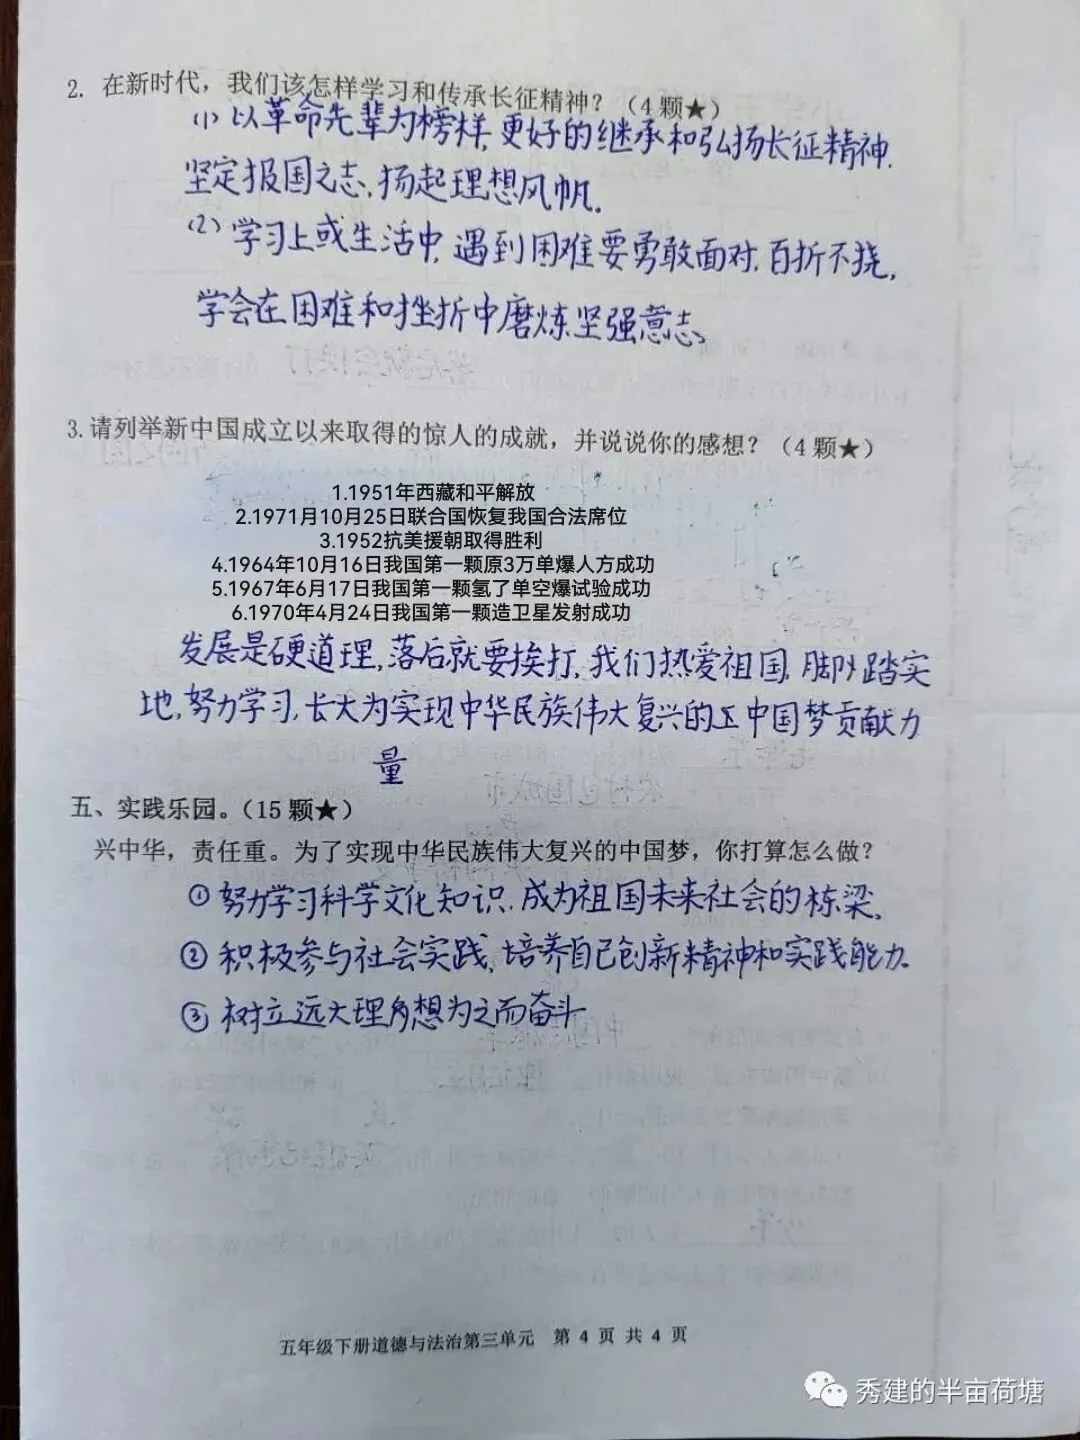 2. 在新时代，我们该怎样学习和传承长征精神？（4颗★）
(1) 以革命先辈为榜样,更好的继承和弘扬长征精神.
坚定报国之志,扬起理想风帆.
(2) 学习上或生活中,遇到困难要勇敢面对,百折不挠,
学会在困难和挫折中磨炼坚强意志、
3.请列举新中国成立以来取得的惊人的成就，并说说你的感想？（4颗★）
1.1951年西藏和平解放
2.1971月10月25日联合国恢复我国合法席位
3.1952抗美援朝取得胜利
4.1964年10月16日我国第一颗原3万单爆人方成功
5.1967年6月17日我国第一颗氢了单空爆试验成功
6.1970年4月24日我国第一颗造卫星发射成功
发展是硬道理,落后就要挨打,我们热爱祖国,脚踏实
地,努力学习,长大为实现中华民族伟大复兴的中国梦贡献力
量
五、实践乐园。（15颗★）
兴中华，责任重。为了实现中华民族伟大复兴的中国梦，你打算怎么做？
① 努力学习科学文化知识,成为祖国未来社会的栋梁、
② 积极参与社会实践,培养自己创新精神和实践能力、
③ 树立远大理想为之而奋斗
五年级下册道德与法治第三单元 第 4 页 共 4 页
秀建的半亩荷塘